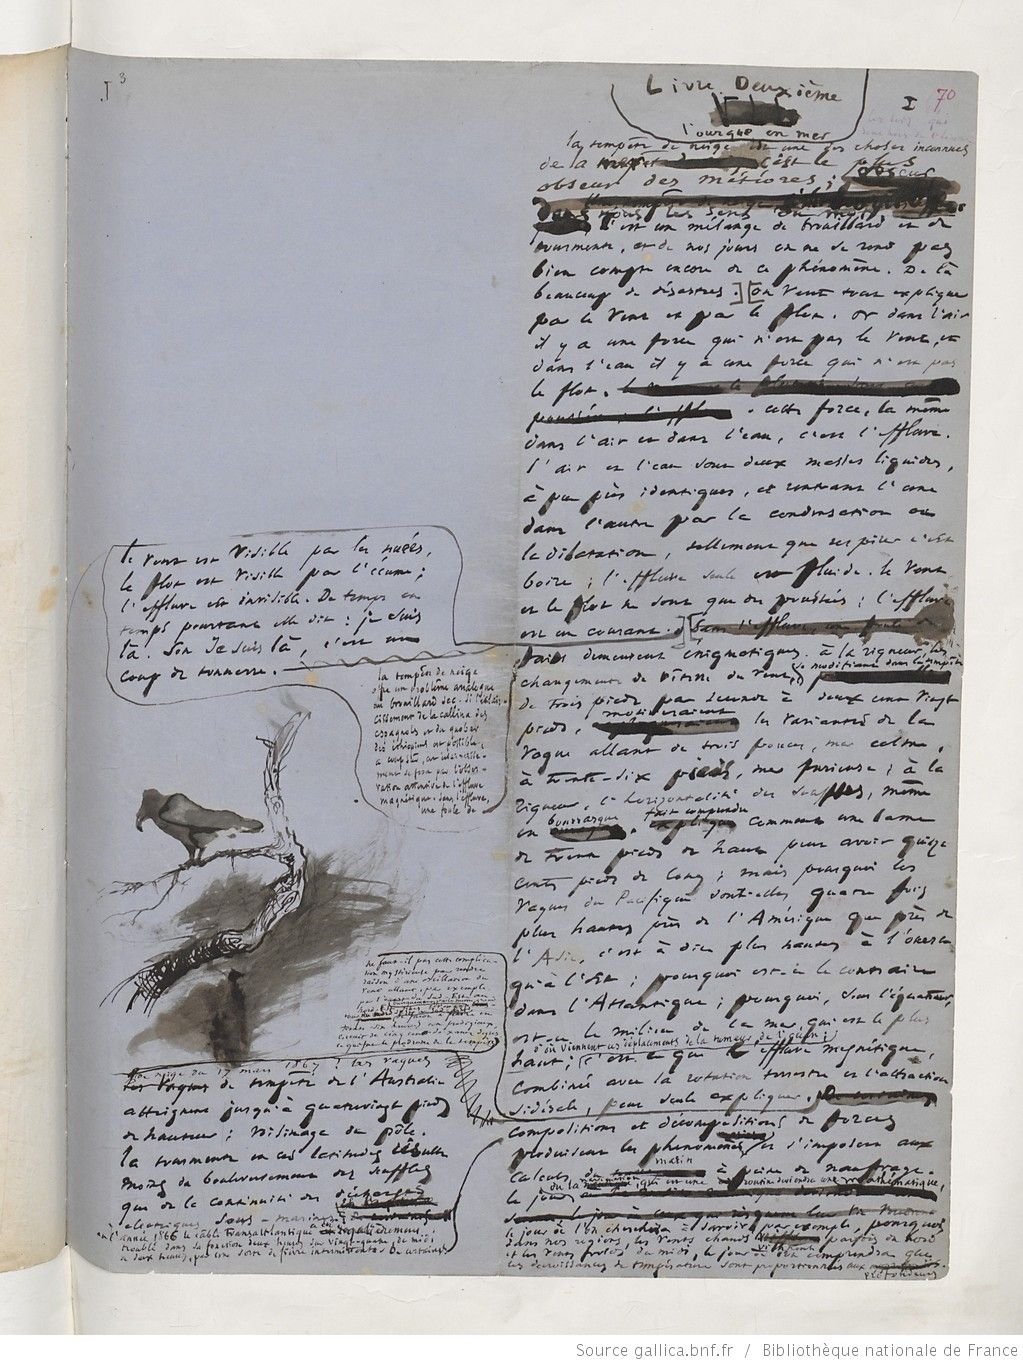 J 3
Livre Deuxième
I 70
l'ourque en mer
la tempête de neige est une des choses inconnues
de la c'est le plus
obscur des météores ; obscur
dans tous les sens du mot.
c'est un mélange de brouillard et de
tourmente, et de nos jours on ne se rend pas
bien compte encore de ce phénomène. De là
beaucoup de désastres. ] [ on veut tout expliquer
par le vent et par le flot. Or dans l'air
il y a une force qui n'est pas le vent, et
dans l'eau il y a une force qui n'est pas
le flot.
cette force, la même
dans l'air et dans l'eau, c'est l'effluve.
l'air et l'eau sont deux masses liquides,
à peu près identiques, et rentrant l'une
dans l'autre par la condensation ou
la dilatation, tellement que respirer c'est
boire ; l'effluve seule est fluide. le vent
et le flot ne sont que des poussées ; l'effluve
est un courant. ] Sans l'effluve, une foule de
faits demeurent énigmatiques. à la rigueur, les
se modifiant dans la tempête
changements de vitesse du vent,
de trois pieds par seconde à deux cent vingt
pieds, motiveraient les variantes de la
vague allant de trois pouces, mer calme,
à trente-six pieds, mer furieuse ; à la
rigueur, l'horizontalité des souffles, même
en bourrasque, fait comprendre comment une lame
de trente pieds de haut peut avoir quinze
cents pieds de long ; mais pourquoi les
vagues du Pacifique sont-elles quatre fois
plus hautes près de l'Amérique que près de
l'Asie, c'est à dire plus hautes à l'ouest
qu'à l'Est ; pourquoi est-ce le contraire
dans l'Atlantique ; pourquoi, sous l'équateur,
est-ce le milieu de la mer qui est le plus
haut ; d'où viennent ces déplacements de la tumeur de l'océan ;
c'est ce que l'effluve magnétique,
combinée avec la rotation terrestre et l'attraction
sidérale, peut seule expliquer. De certaines
compositions et décompositions de forces
produisent les phénomènes et s'imposent aux
calculs du marin à peine de naufrage.
le jour où la qui est une routine deviendra une mathématique,
le jour où l'on cherchera à savoir, par exemple, pourquoi
dans nos régions, les vents chauds viennent parfois du nord
et les vents froids du midi, le jour où l'on comprendra que
les décroissances de température sont proportionnées aux profondeurs
le vent est visible par les nuées,
le flot est visible par l'écume ;
l'effluve est invisible. De temps en
temps pourtant elle dit : je suis
là. Son Je suis là, c'est un
coup de tonnerre.
la tempête de neige
offre un problème analogue
au brouillard sec. Si l'éclair-
cissement de la callina des
espagnols et du quobar
des éthiopiens est possible,
à coup sûr, cet éclaircisse-
ment se fera par l'obser-
vation attentive de l'effluve
magnétique. Sans l'effluve,
une foule de
ne faut-il pas cette complica-
tion mystérieuse pour rendre
raison d'une oscillation du
vent allant, par exemple
neige du 19 mars 1867 ! les vagues
Les vagues de tempête de l'Australie
atteignent jusqu'à quatrevingt pieds
de hauteur ; voisinage du pôle.
la tourmente en ces latitudes résulte
moins du bouleversement des souffles
que de la continuité des décharges
électriques sous-marines
en l'année 1866 le câble transatlantique a été
troublé dans sa fonction deux heures sur vingt-quatre, de midi
à deux heures, par une sorte de fièvre intermittente De certaines
Source gallica.bnf.fr / Bibliothèque nationale de France